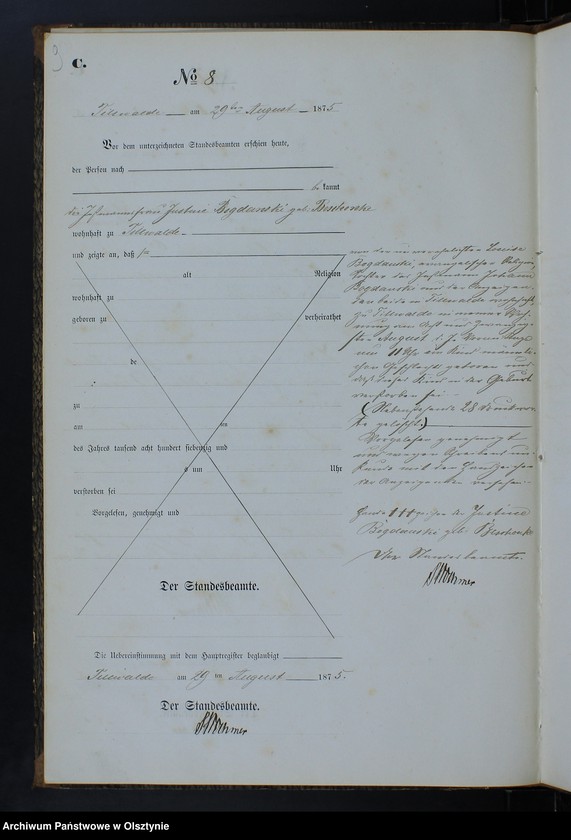 C.
No 8
Tillwalde am 29ten August 1875
Vor dem unterzeichneten Standesbeamten erschien heute,
der Person nach
bekannt
die Justine Bogdanski geb.
wohnhaft zu Tillwalde
und zeigte an, daß
alt Religion
wohnhaft zu
geboren zu verheirathet
de
zu
am im
des Jahres tausend acht hundert siebenzig und
um Uhr
verstorben sei
Vorgelesen, genehmigt und
Der Standesbeamte.
von der unverehelichten Louise
Bogdanski, evangelischer Religion,
Tochter des Johann
Bogdanski und der
beide in Tillwalde wohnhaft
zu Tillwalde in
August d. J.
um 11 Uhr ein Kind
chen Geschlechts geboren und
daß dieses Kind in der Geburt
verstorben sei
(Nebenstehende 28 Druckwor
te gelöscht.)
Vorgelesen genehmigt
und wegen
kunde mit dem Handzeichen
der Anzeigenden versehen
Handzeichen der Justine
Bogdanski geb.
Der Standesbeamte.
Die Uebereinstimmung mit dem Hauptregister beglaubigt
Tillwalde am 29ten August 1875.
Der Standesbeamte.
Archiwum Państwowe w Olsztynie